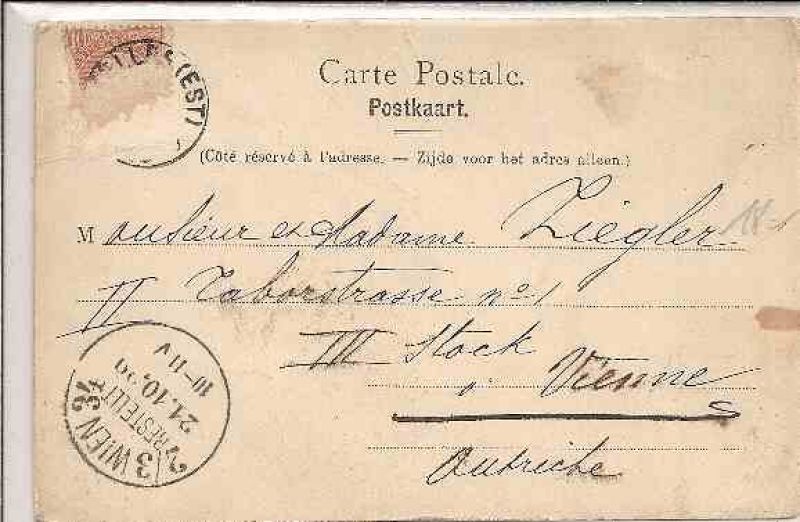 (EST)
Carte Postale.
Postkaart.
(Côté réservé à l'adresse. — Zijde voor het adres alleen.)
Monsieur et Madame Ziegler
II Taborstrasse nº 1
III Stock
Vienne
Autriche
WIEN
BESTELLT
21.10.99